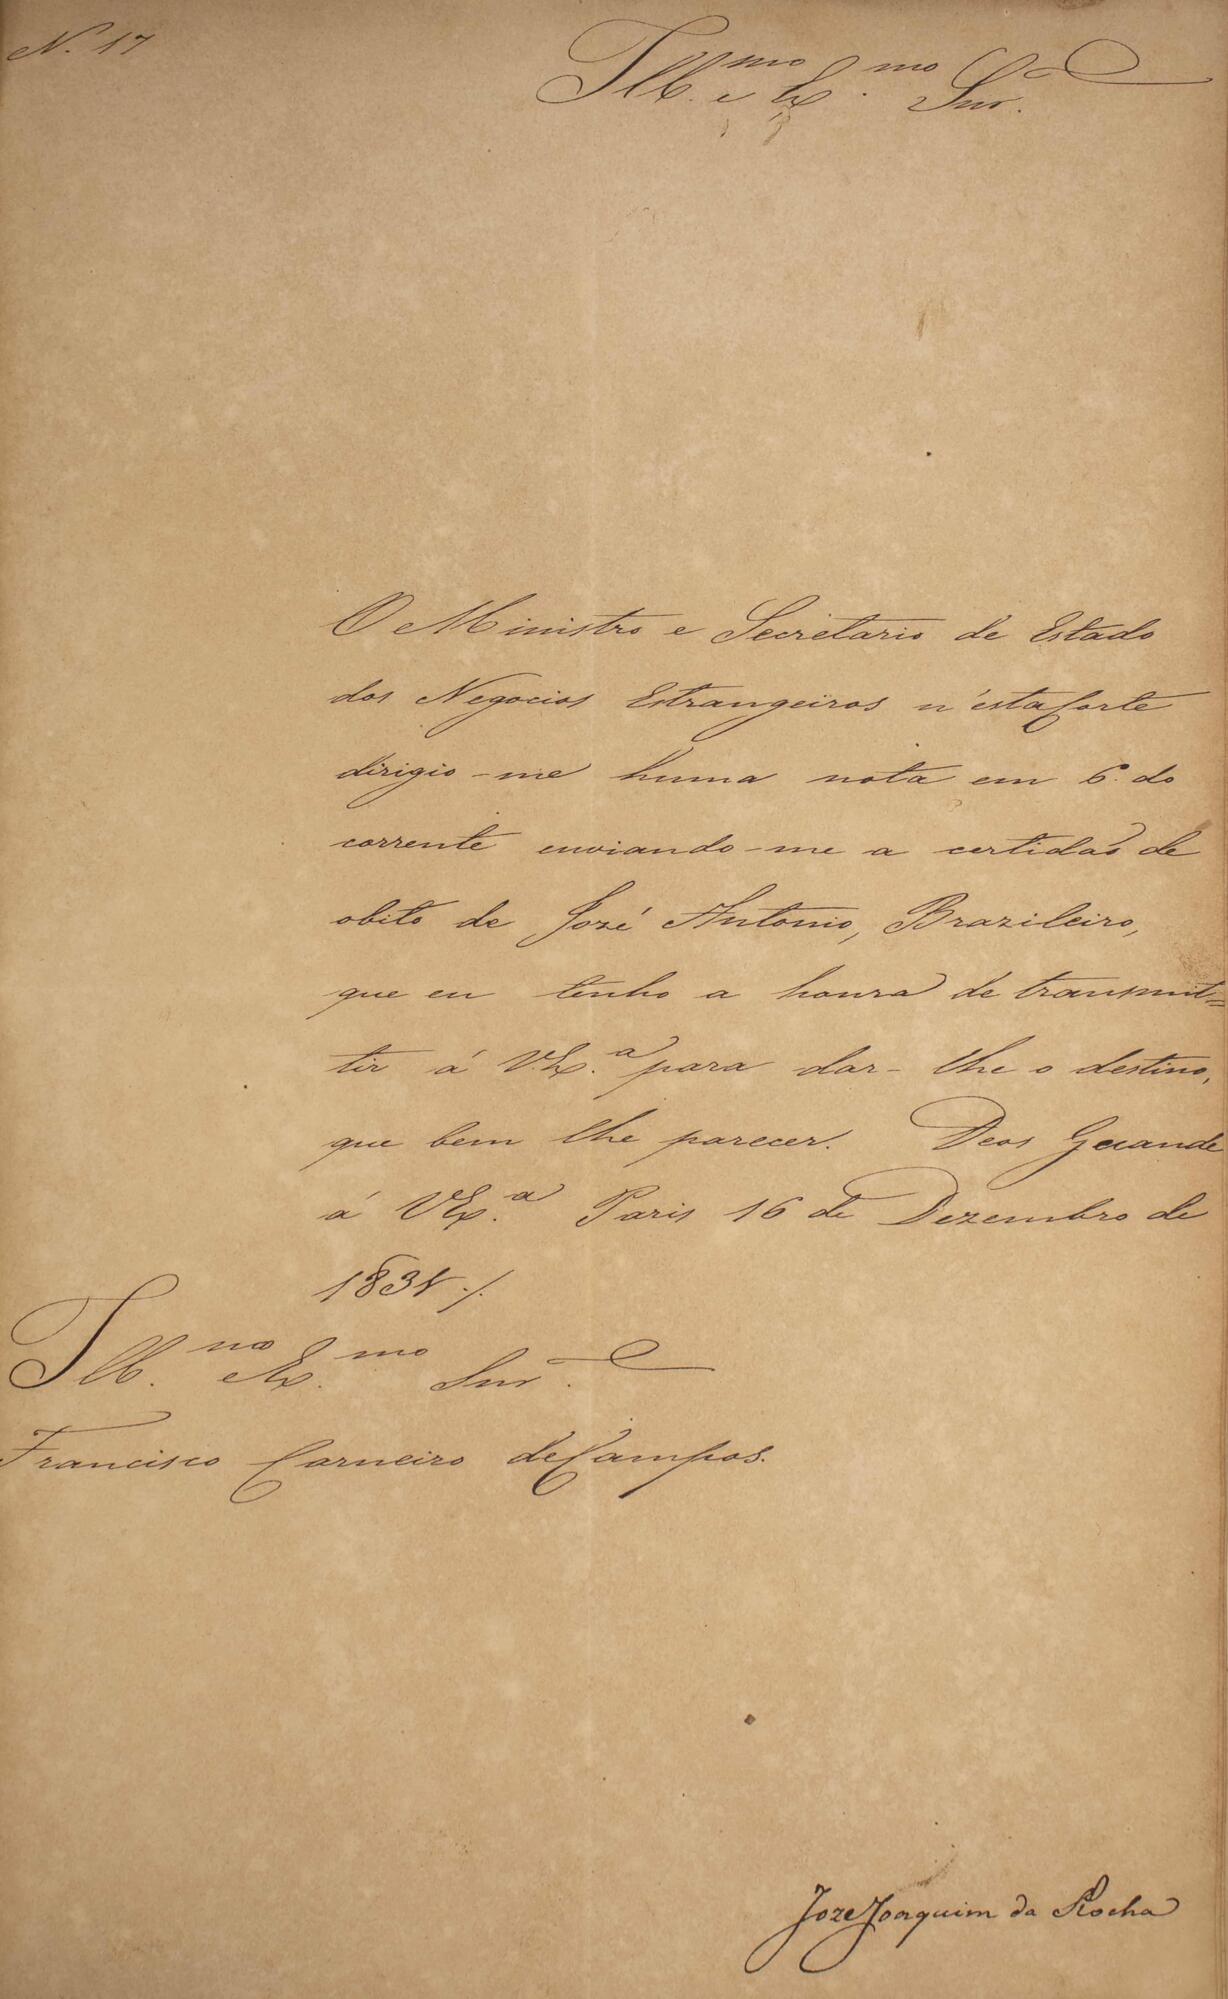 N. 17
Ill.mo e Ex.mo Snr.
O Ministro e Secretario de Estado
dos Negocios Estrangeiros n'esta Corte
dirigio-me huma nota em 6 do
corrente enviando-me a certidaõ de
obito de Jozé Antonio, Brazileiro,
que eu tenho a honra de transmit=
tir á V.Ex.a para dar-lhe o destino,
que bem lhe parecer. Deos Guarde
á V.Ex.a Paris 16 de Dezembro de
Ill.mo e Ex.mo Snr.
Francisco Carneiro de Campos.
Joze Joaquim da Rocha